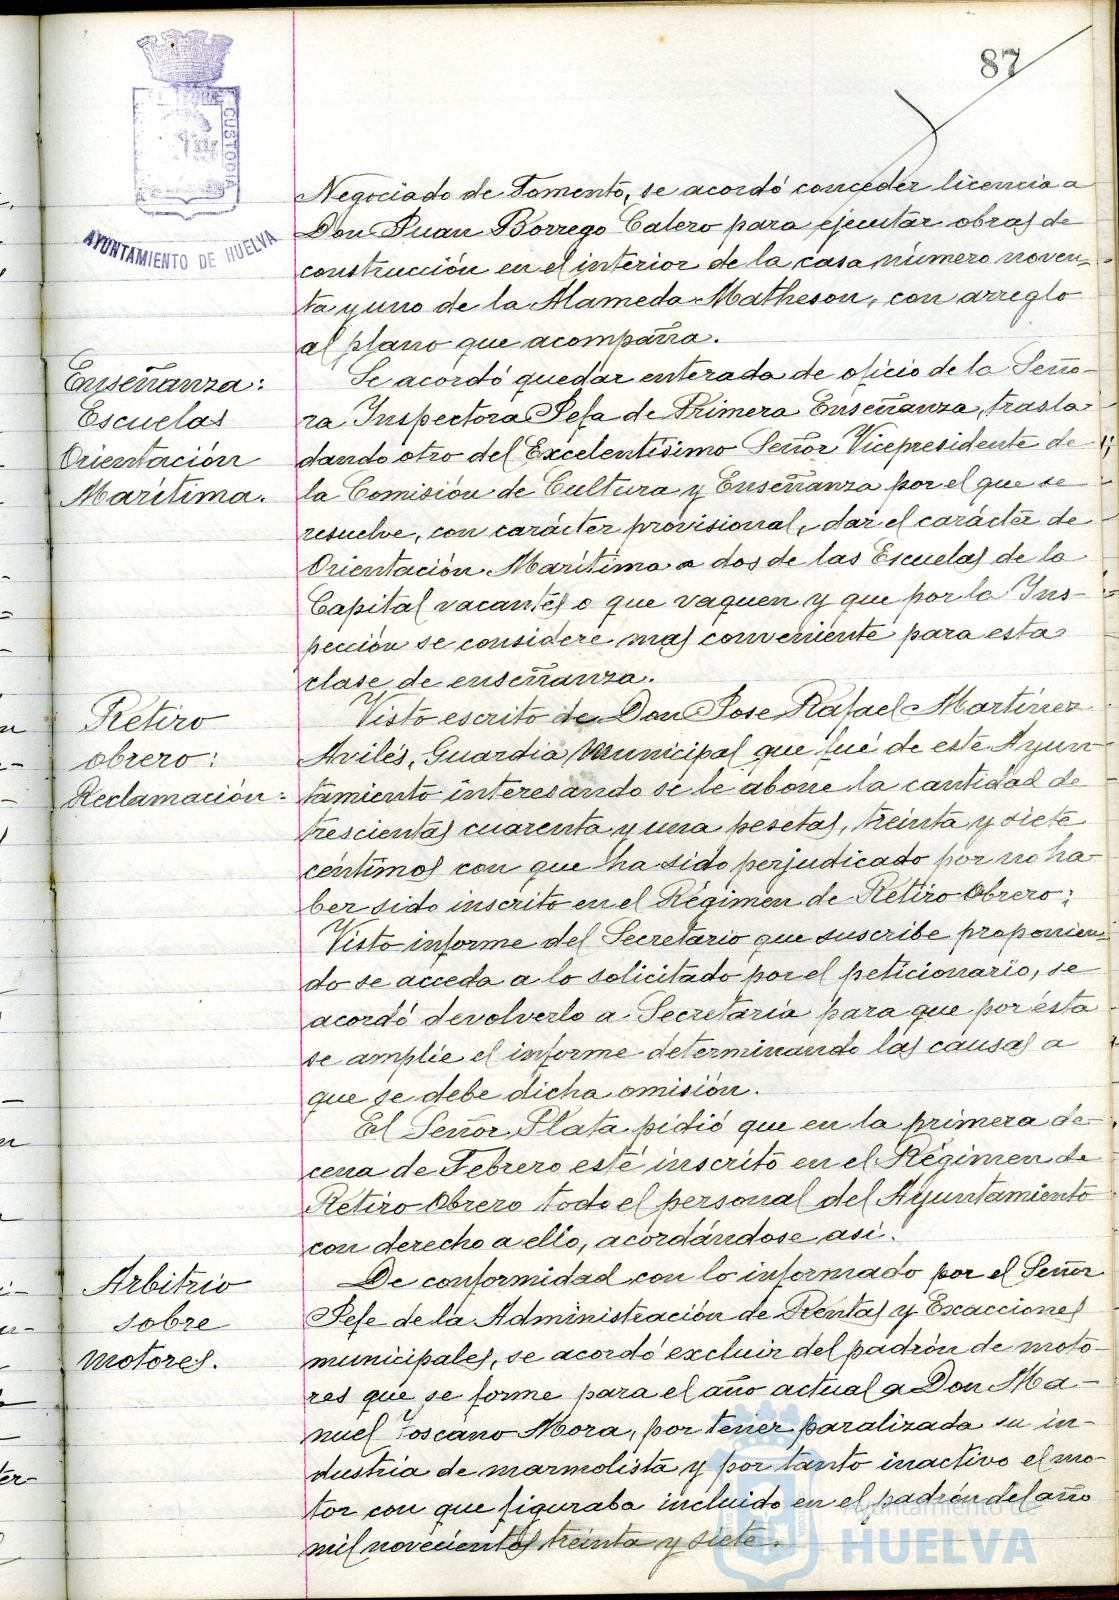 87
CUSTODIA
AYUNTAMIENTO DE HUELVA
Negociado de Fomento, se acordó conceder licencia a
Don Juan Borrego Calero para ejecutar obras de
construcción en el interior de la casa número noven-
ta y uno de la Alameda Matheson, con arreglo
al plano que acompaña.
Enseñanza:
Escuelas
Orientación
Marítima.
Se acordó quedar enterada de oficio de la Seño-
ra Inspectora Jefa de Primera Enseñanza, trasla-
dando otro del Excelentísimo Señor Vicepresidente de
la Comisión de Cultura y Enseñanza por el que se
resuelve, con carácter provisional, dar el carácter de
Orientación Marítima a dos de las Escuelas de la
Capital vacantes o que vaquen y que por la Ins-
pección se considere mas conveniente para esta
clase de enseñanza.
Retiro
obrero:
Reclamación:
Visto escrito de Don Jose Rafael Martínez
Avilés, Guardia Municipal que fué de este Ayun-
tamiento interesando se le abone la cantidad de
trescientas cuarenta y una pesetas, treinta y siete
céntimos con que ha sido perjudicado por no ha-
ber sido inscrito en el Régimen de Retiro Obrero;
Visto informe del Secretario que suscribe proponien-
do se acceda a lo solicitado por el peticionario, se
acordó devolverlo a Secretaría para que por ésta
se amplíe el informe determinando las causas a
que se debe dicha omisión.
El Señor Plata pidió que en la primera de-
cena de Febrero esté inscrito en el Régimen de
Retiro Obrero todo el personal del Ayuntamiento
con derecho a ello, acordándose así.
Arbitrio
sobre
motores.
De conformidad con lo informado por el Señor
Jefe de la Administración de Rentas y Exacciones
municipales, se acordó excluir del padrón de moto-
res que se forme para el año actual a Don Ma-
nuel Toscano Mora, por tener paralizada su in-
dustria de marmolista y por tanto inactivo el mo-
tor con que figuraba incluido en el padrón del año
mil novecientos treinta y siete.
Ayuntamiento de
HUELVA